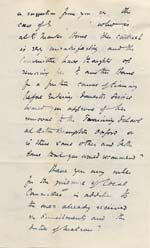 a suggestion from you in the
case of          who is
at         Home. the outlook
is very unsatisfactory and the
Committee have thought of
removing her to another Home
for a further course of training
before entering domestic service
would you approve of her
removal to the Farming School
at Acton        Oxford or
is there some other and better
Home that you would recommend?
Have you any rules
for the guidance of Local
Committees in addition to
the ones already received
on Punishments and the
duties of Matron?